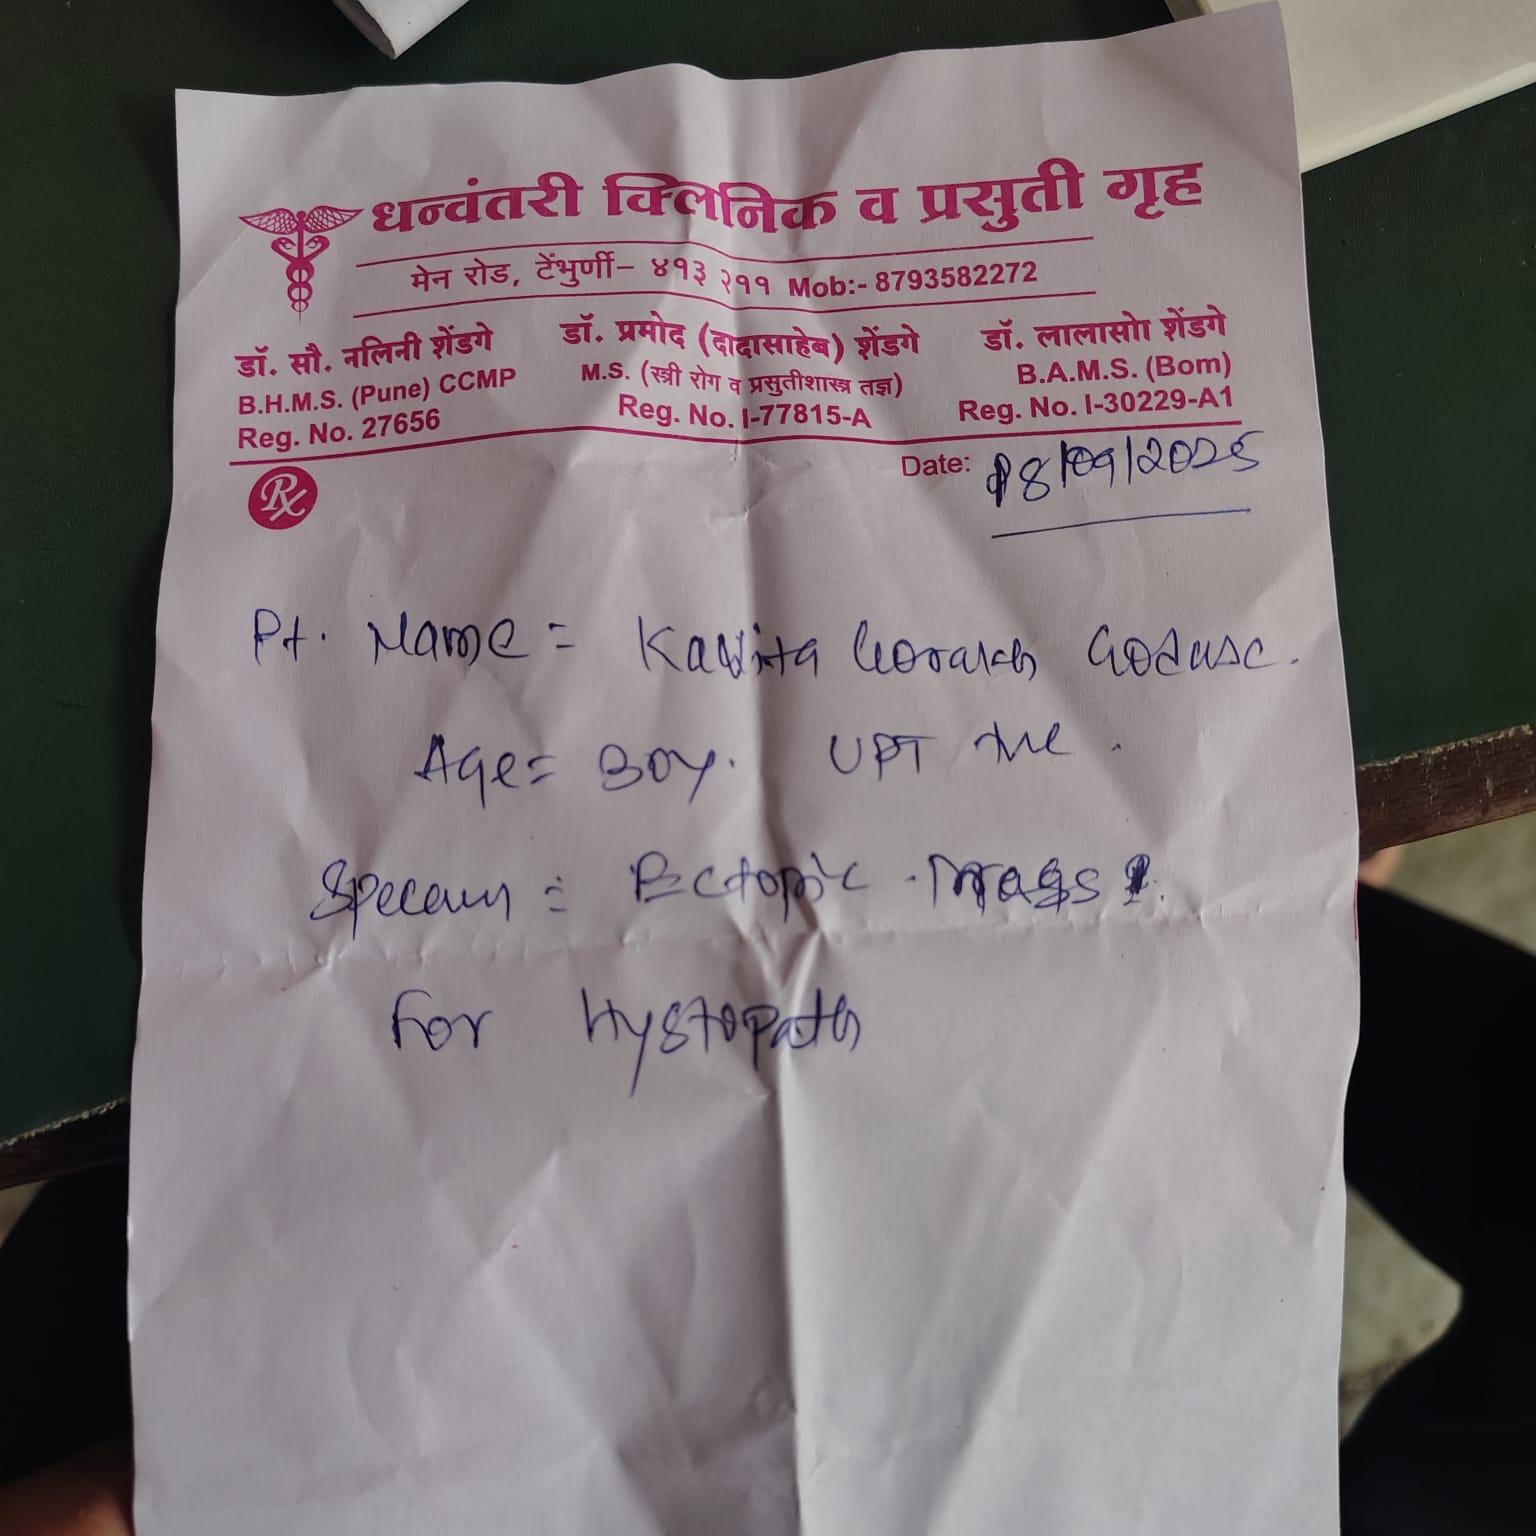 धन्वंतरी क्लिनिक व प्रसुती गृह
मेन रोड, टेंभुर्णी– ४१३ २११ Mob:- 8793582272
डॉ. सौ. नलिनी शेंडगे
B.H.M.S. (Pune) CCMP
Reg. No. 27656
डॉ. प्रमोद (दादासाहेब) शेंडगे
M.S. (स्त्री रोग व प्रसुतीशास्त्र तज्ञ)
Reg. No. I-77815-A
डॉ. लालासो शेंडगे
B.A.M.S. (Bom)
Reg. No. I-30229-A1
Date: 18/09/2025
Rx
Pt. Name = Kavita
Age = 30y. UPT +ve.
= Ectopic
For Hystopath